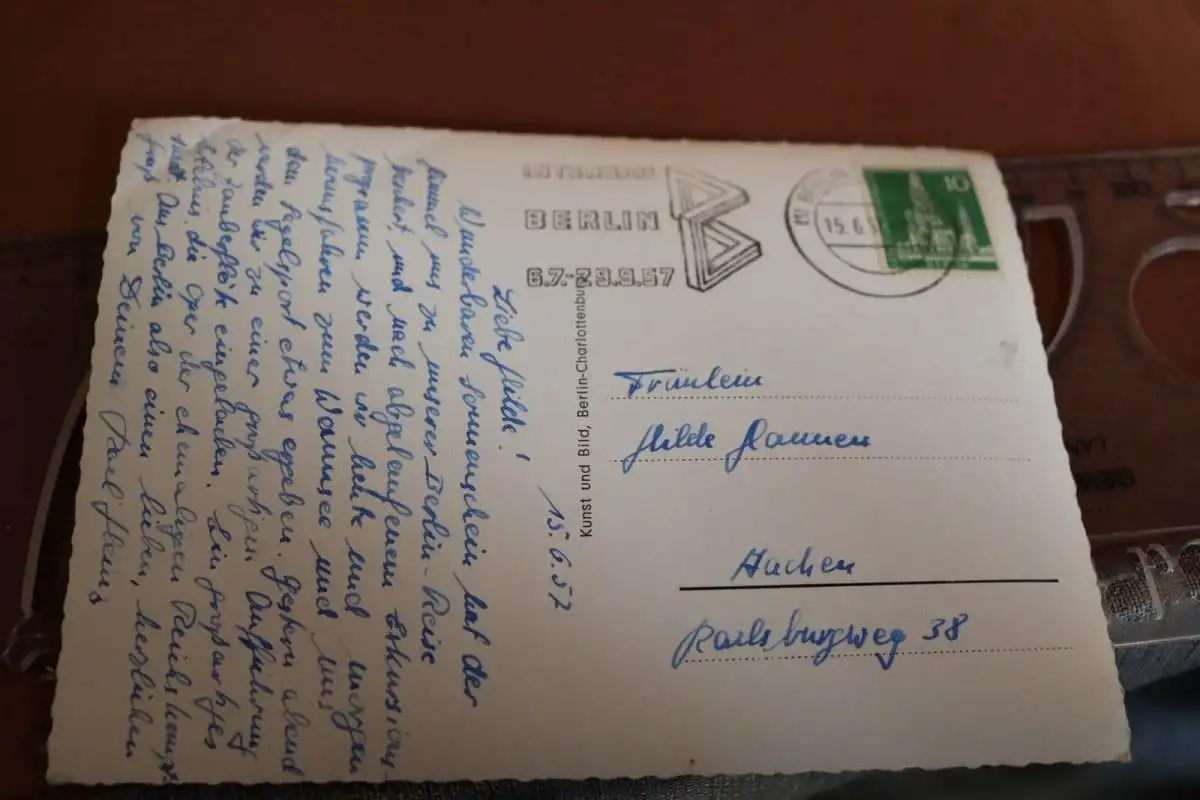 15.6.57
Liebe Hilde!
Wunderbaren Sonnenschein hat der
Himmel uns zu unserer Berlin-Reise
und nach abgelaufenem Exkursions-
programm werden wir heute und morgen
hinausfahren zum Wannsee und uns
dem Segelsport etwas ergeben. Gestern abend
wurden wir zu einer großartigen Aufführung
der Zauberflöte eingeladen. Ein großartiges
die Oper der ehemaligen Reichshaupt-
stadt. Aus Berlin also einen lieben, herzlichen
Gruß von Deinem Karl Heinz
Kunst und Bild, Berlin-Charlottenburg
INTERBAU
BERLIN
6.7.-29.9.57
BERLIN
15.6.5
10
Fräulein
Hilde Hannen
Aachen
38